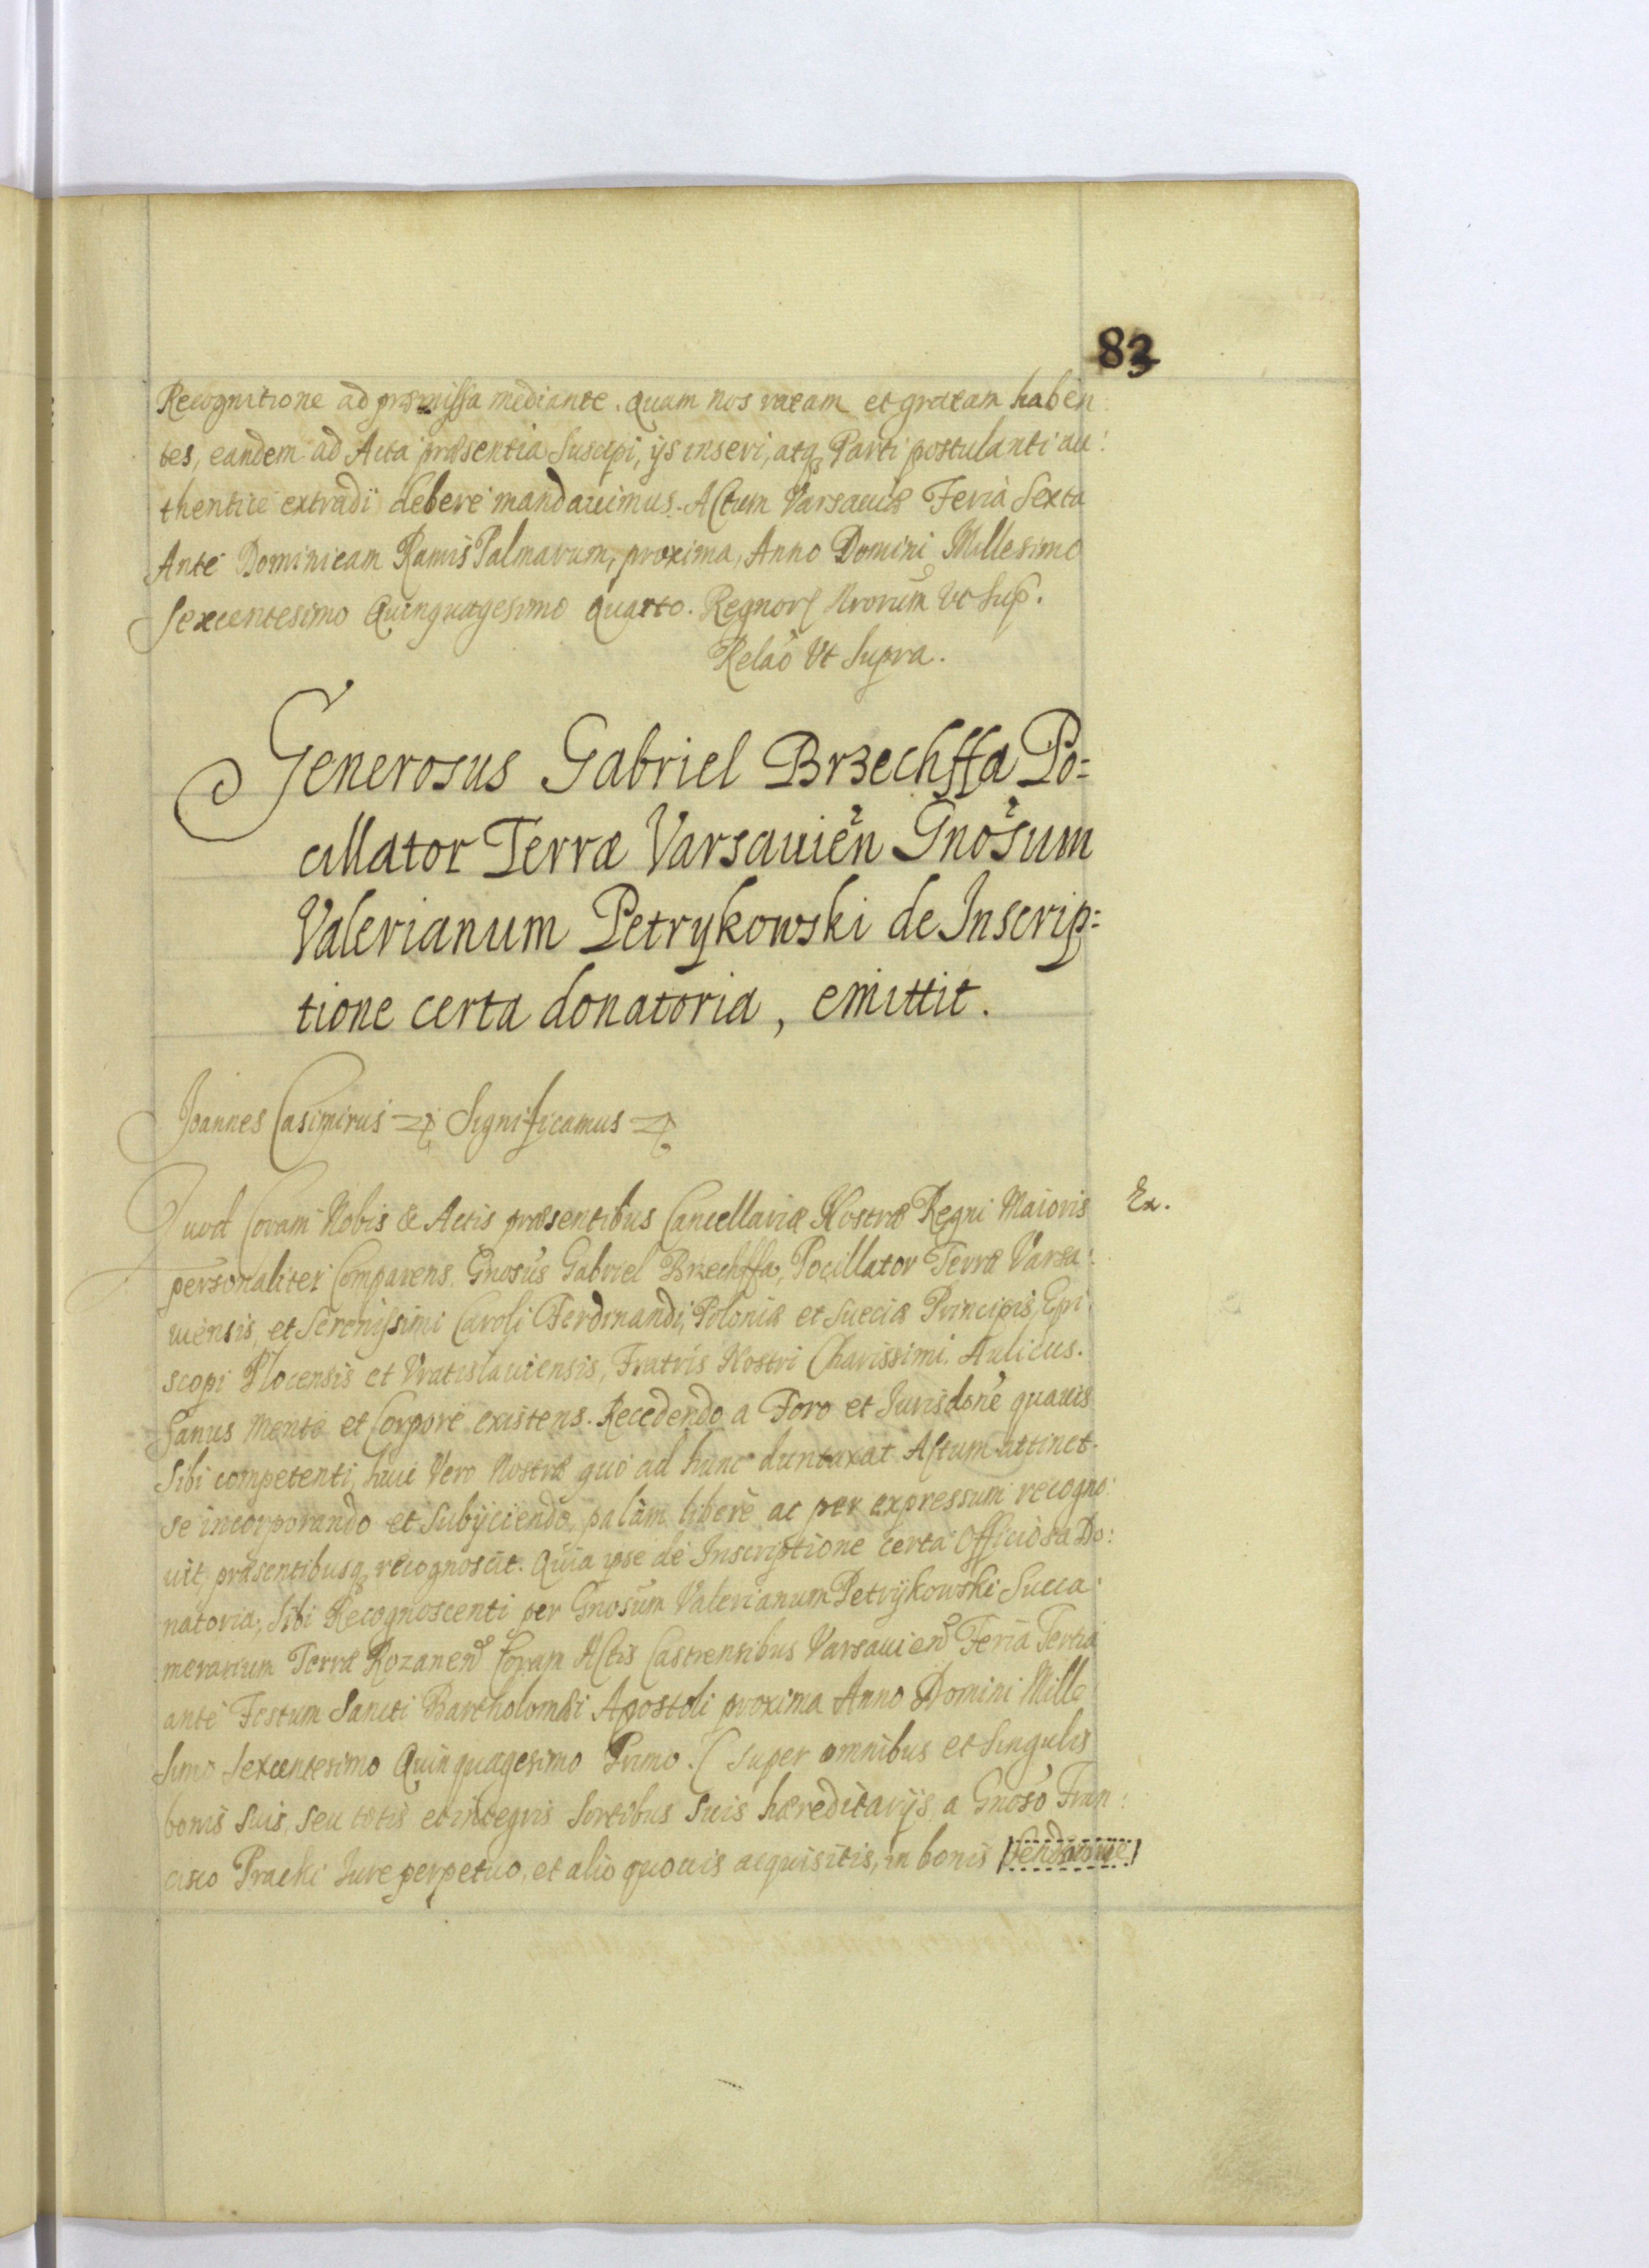 83
Recognitione ad præmissa mediante. Quam nos ratam et gratam haben:
tes, eandem ad Acta præsentia Suscipi, ijs inseri, atq Parti postulanti au:
thentice extradi debere mandauimus. Actum Varsauiæ Feria Sexta
Ante Dominicam Ramis Palmarum, proxima, Anno Domini Millesimo
Sexcentesimo Quinquagesimo Quarto. Regnor Nrorum Vt Sup.
Relão Vt Supra.
Generosus Gabriel Brzechffa Po=
cillator Terræ Varsauien Gnosum
Valerianum Petrykowski de Inscrip=
tione certa donatoria, emittit.
Joannes Casimirus Significamus
Quod Coram Nobis & Actis præsentibus Cancellariæ Nostræ Regni Maioris
Ex.
personaliter Comparens Gnosus Gabriel Brzechffa, Pocillator Terræ Varsa:
uiensis, et Serenissimi Caroli Ferdinandi, Poloniæ et Sueciæ Principis, Epi
scopi Plocensis et Vratislauiensis, Fratris Nostri Charissimi. Aulicus.
Sanus Mente et Corpore existens. Recedendo a Foro et Jurisdone quauis
Sibi competenti, huic Vero Nostræ quo ad hunc duntaxat Actum attinet.
se incorporando et Subijciendo, palàm liberè ac per expressum recogno:
uit, præsentibusq recognoscit. Quia ipse de Inscriptione certa Officiosa Do:
natoria, Sibi Recognoscenti per Gnosum Valerianum Petrijkowski Succa:
merarium Terræ Rozanen Coram Actis Castrensibus Varsauien Feria Tertia
ante Festum Sancti Bartholomæi Apostoli proxima Anno Domini Mille
simo Sexcentesimo Quinquagesimo Primo. (Super omnibus et Singulis
bonis Suis, seu totis et integris Sortibus Suis hæreditarijs a Gnoso Fran:
cisco Pracki Jure perpetuo, et alio quouis acquisitis, in bonis